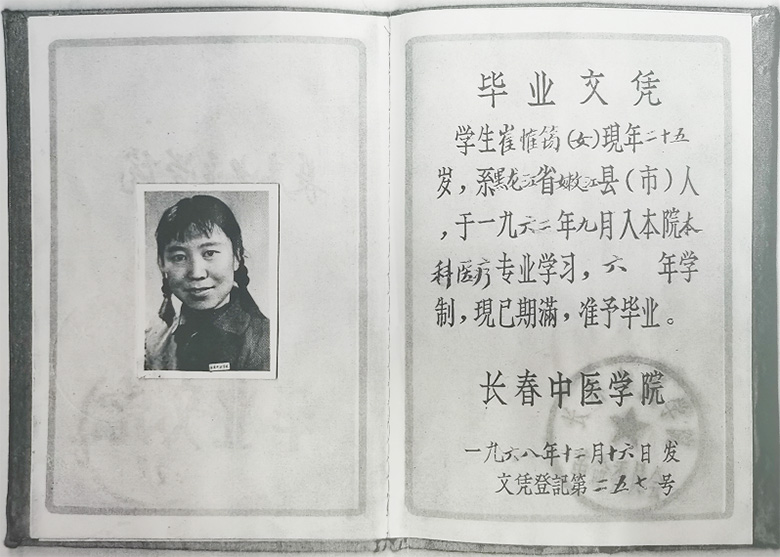 毕业文凭
学生崔惟筠(女)現年二十五
岁，系黑龙江省嫩江县(市)人
，于一九六二年九月入本院本
科医疗专业学习，六 年学
制，現已期滿，准予毕业。
长春中医学院
一九六八年十二月十六日 发
文凭登記第二五七号